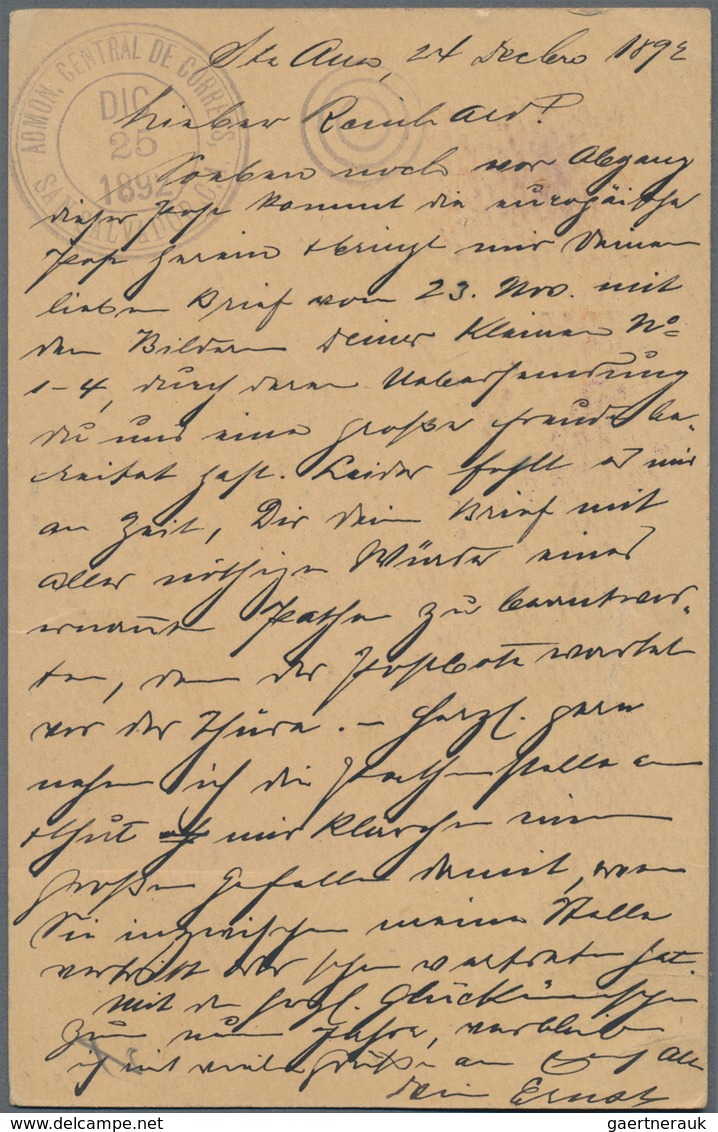 Sta Ana, 24 Decbro 1892
ADMON. CENTRAL DE CORREOS,
DIC
25
1892
SAN SALVADOR C.A.
Lieber Reinhard!
Soeben noch vor Abgang
dieser Post kommt die europäische
Post herein & bringt mir Deinen
lieben Brief vom 23. Nov. mit
den Bildern Deiner Kleinen No
1-4, durch deren Uebersendung
Du uns eine große Freude be-
reitet hast. Leider fehlt es mir
an Zeit, Dir dein Brief mit
aller nöthigen Würde eines
ernannten Pathen zu beantwor-
ten, denn der Postbote wartet
vor der Thüre. – Herzl. gern
nehm ich die Pathenstelle an
& thut mir Klärchen einen
großen Gefallen damit, wenn
Sie inzwischen meine Stelle
vertritt oder schon vertreten hat.
Mit den herzl. Glückwünschen
zum neuen Jahre, verbleib
ich mit vielen Grüßen an Euch Alle
Dein Ernst
gaertnerauk